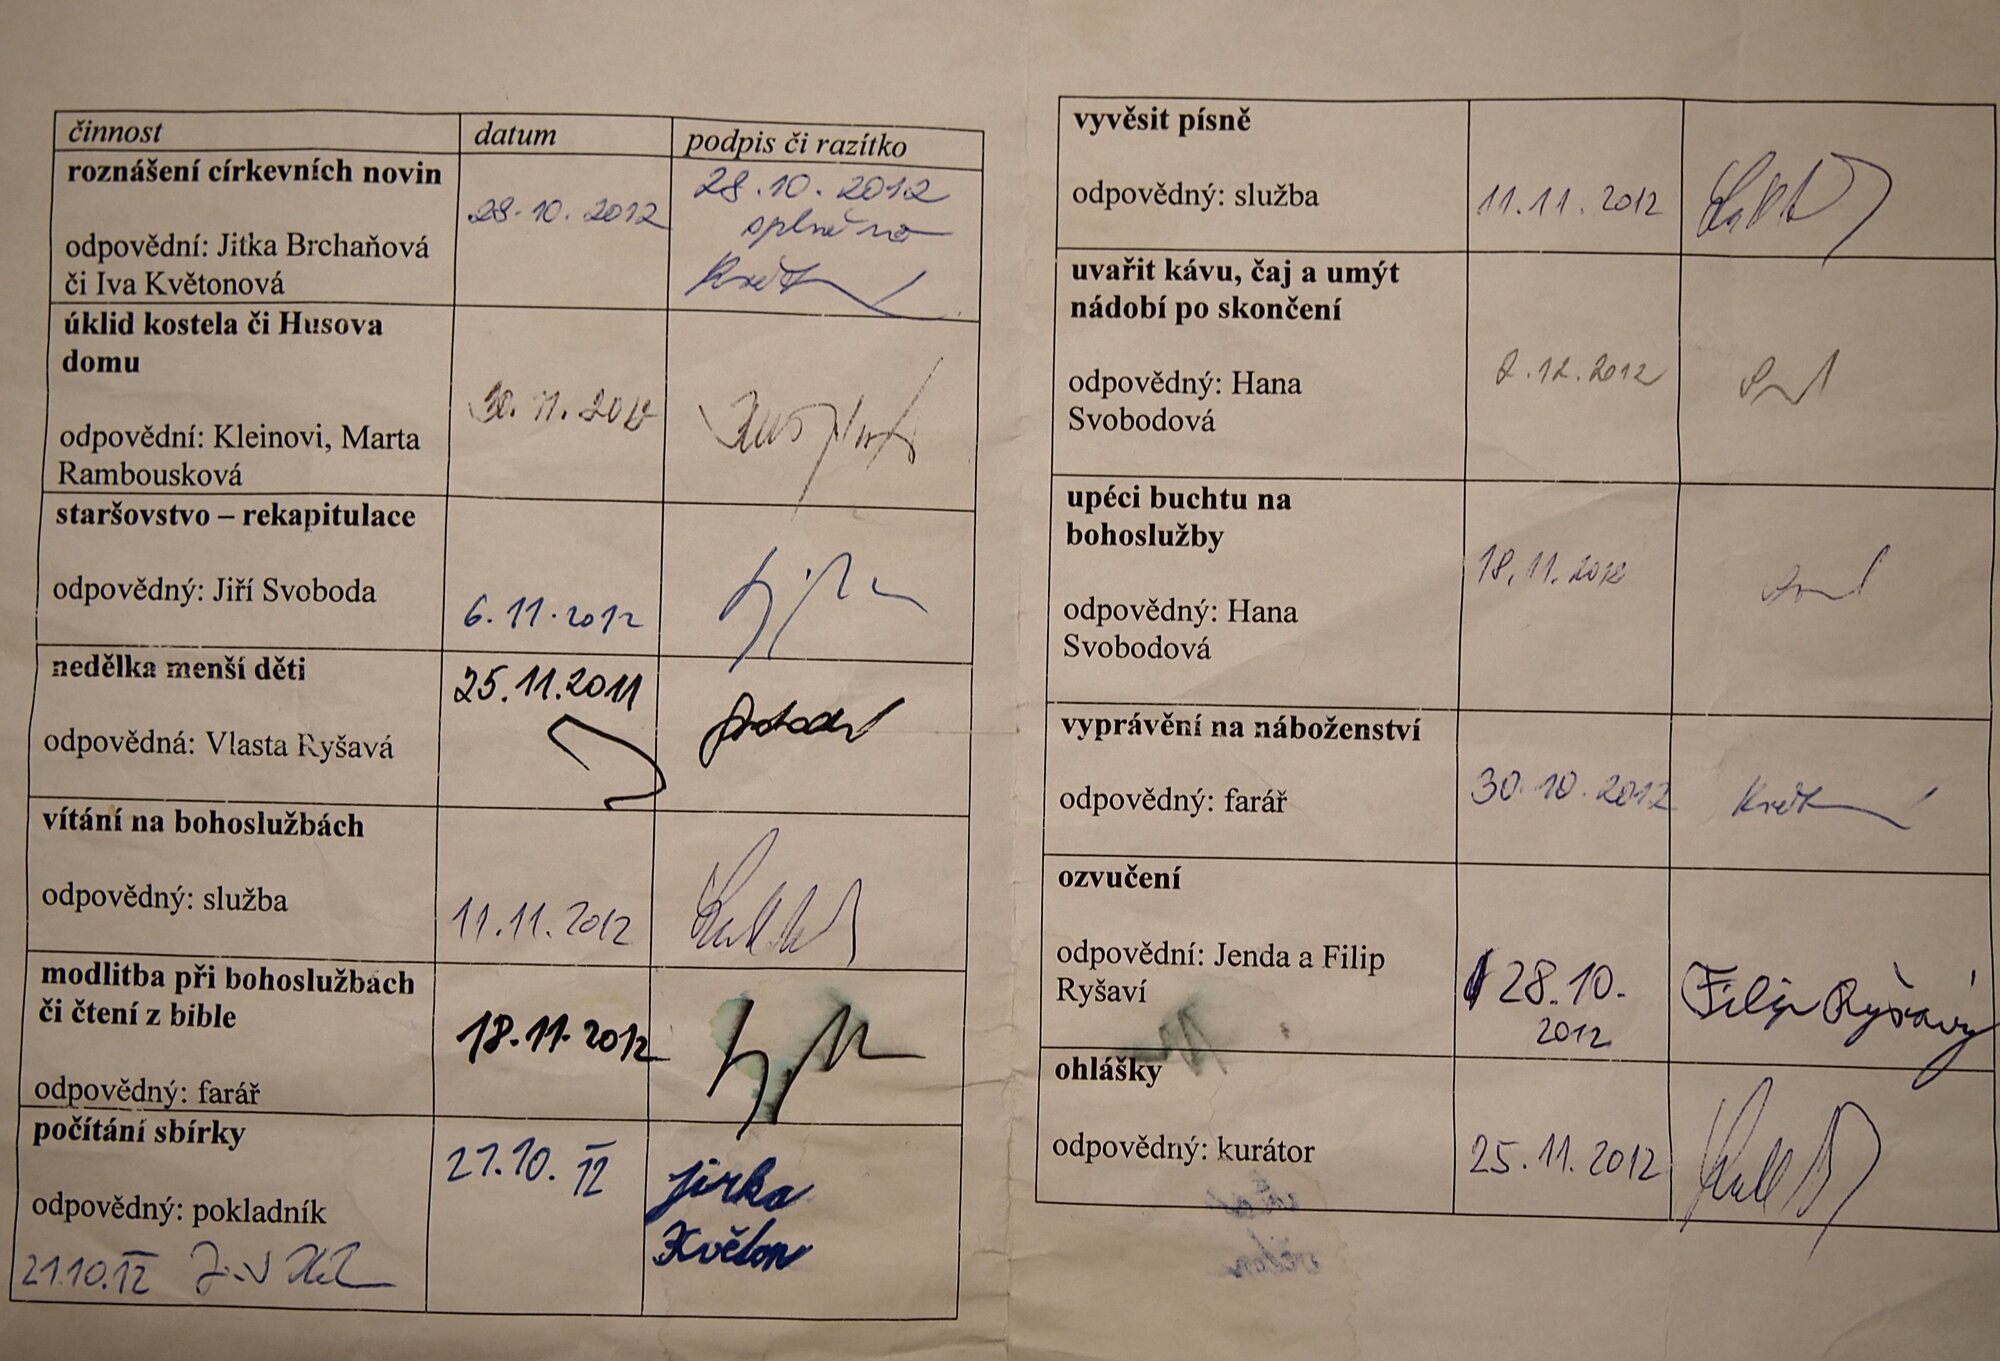 činnost datum podpis či razítko
roznášení církevních novin
28.10.2012
28.10.2012
splněno
odpovědní: Jitka Brchaňová
či Iva Květonová
Květ
úklid kostela či Husova
domu
30.11.2012
odpovědní: Kleinovi, Marta
Rambousková
staršovstvo – rekapitulace
odpovědný: Jiří Svoboda
6.11.2012
nedělka menší děti
25.11.2011
odpovědná: Vlasta Ryšavá
vítání na bohoslužbách
odpovědný: služba
11.11.2012
modlitba při bohoslužbách
či čtení z bible
18.11.2012
odpovědný: farář
počítání sbírky
21.10.12
jirka
Květon
odpovědný: pokladník
21.10.12
vyvěsit písně
odpovědný: služba
11.11.2012
uvařit kávu, čaj a umýt
nádobí po skončení
2.12.2012
odpovědný: Hana
Svobodová
upéci buchtu na
bohoslužby
18.11.2012
odpovědný: Hana
Svobodová
vyprávění na náboženství
odpovědný: farář
30.10.2012
Květ
ozvučení
odpovědní: Jenda a Filip
Ryšaví
28.10.
2012
Filip Ryšavý
ohlášky
odpovědný: kurátor
25.11.2012